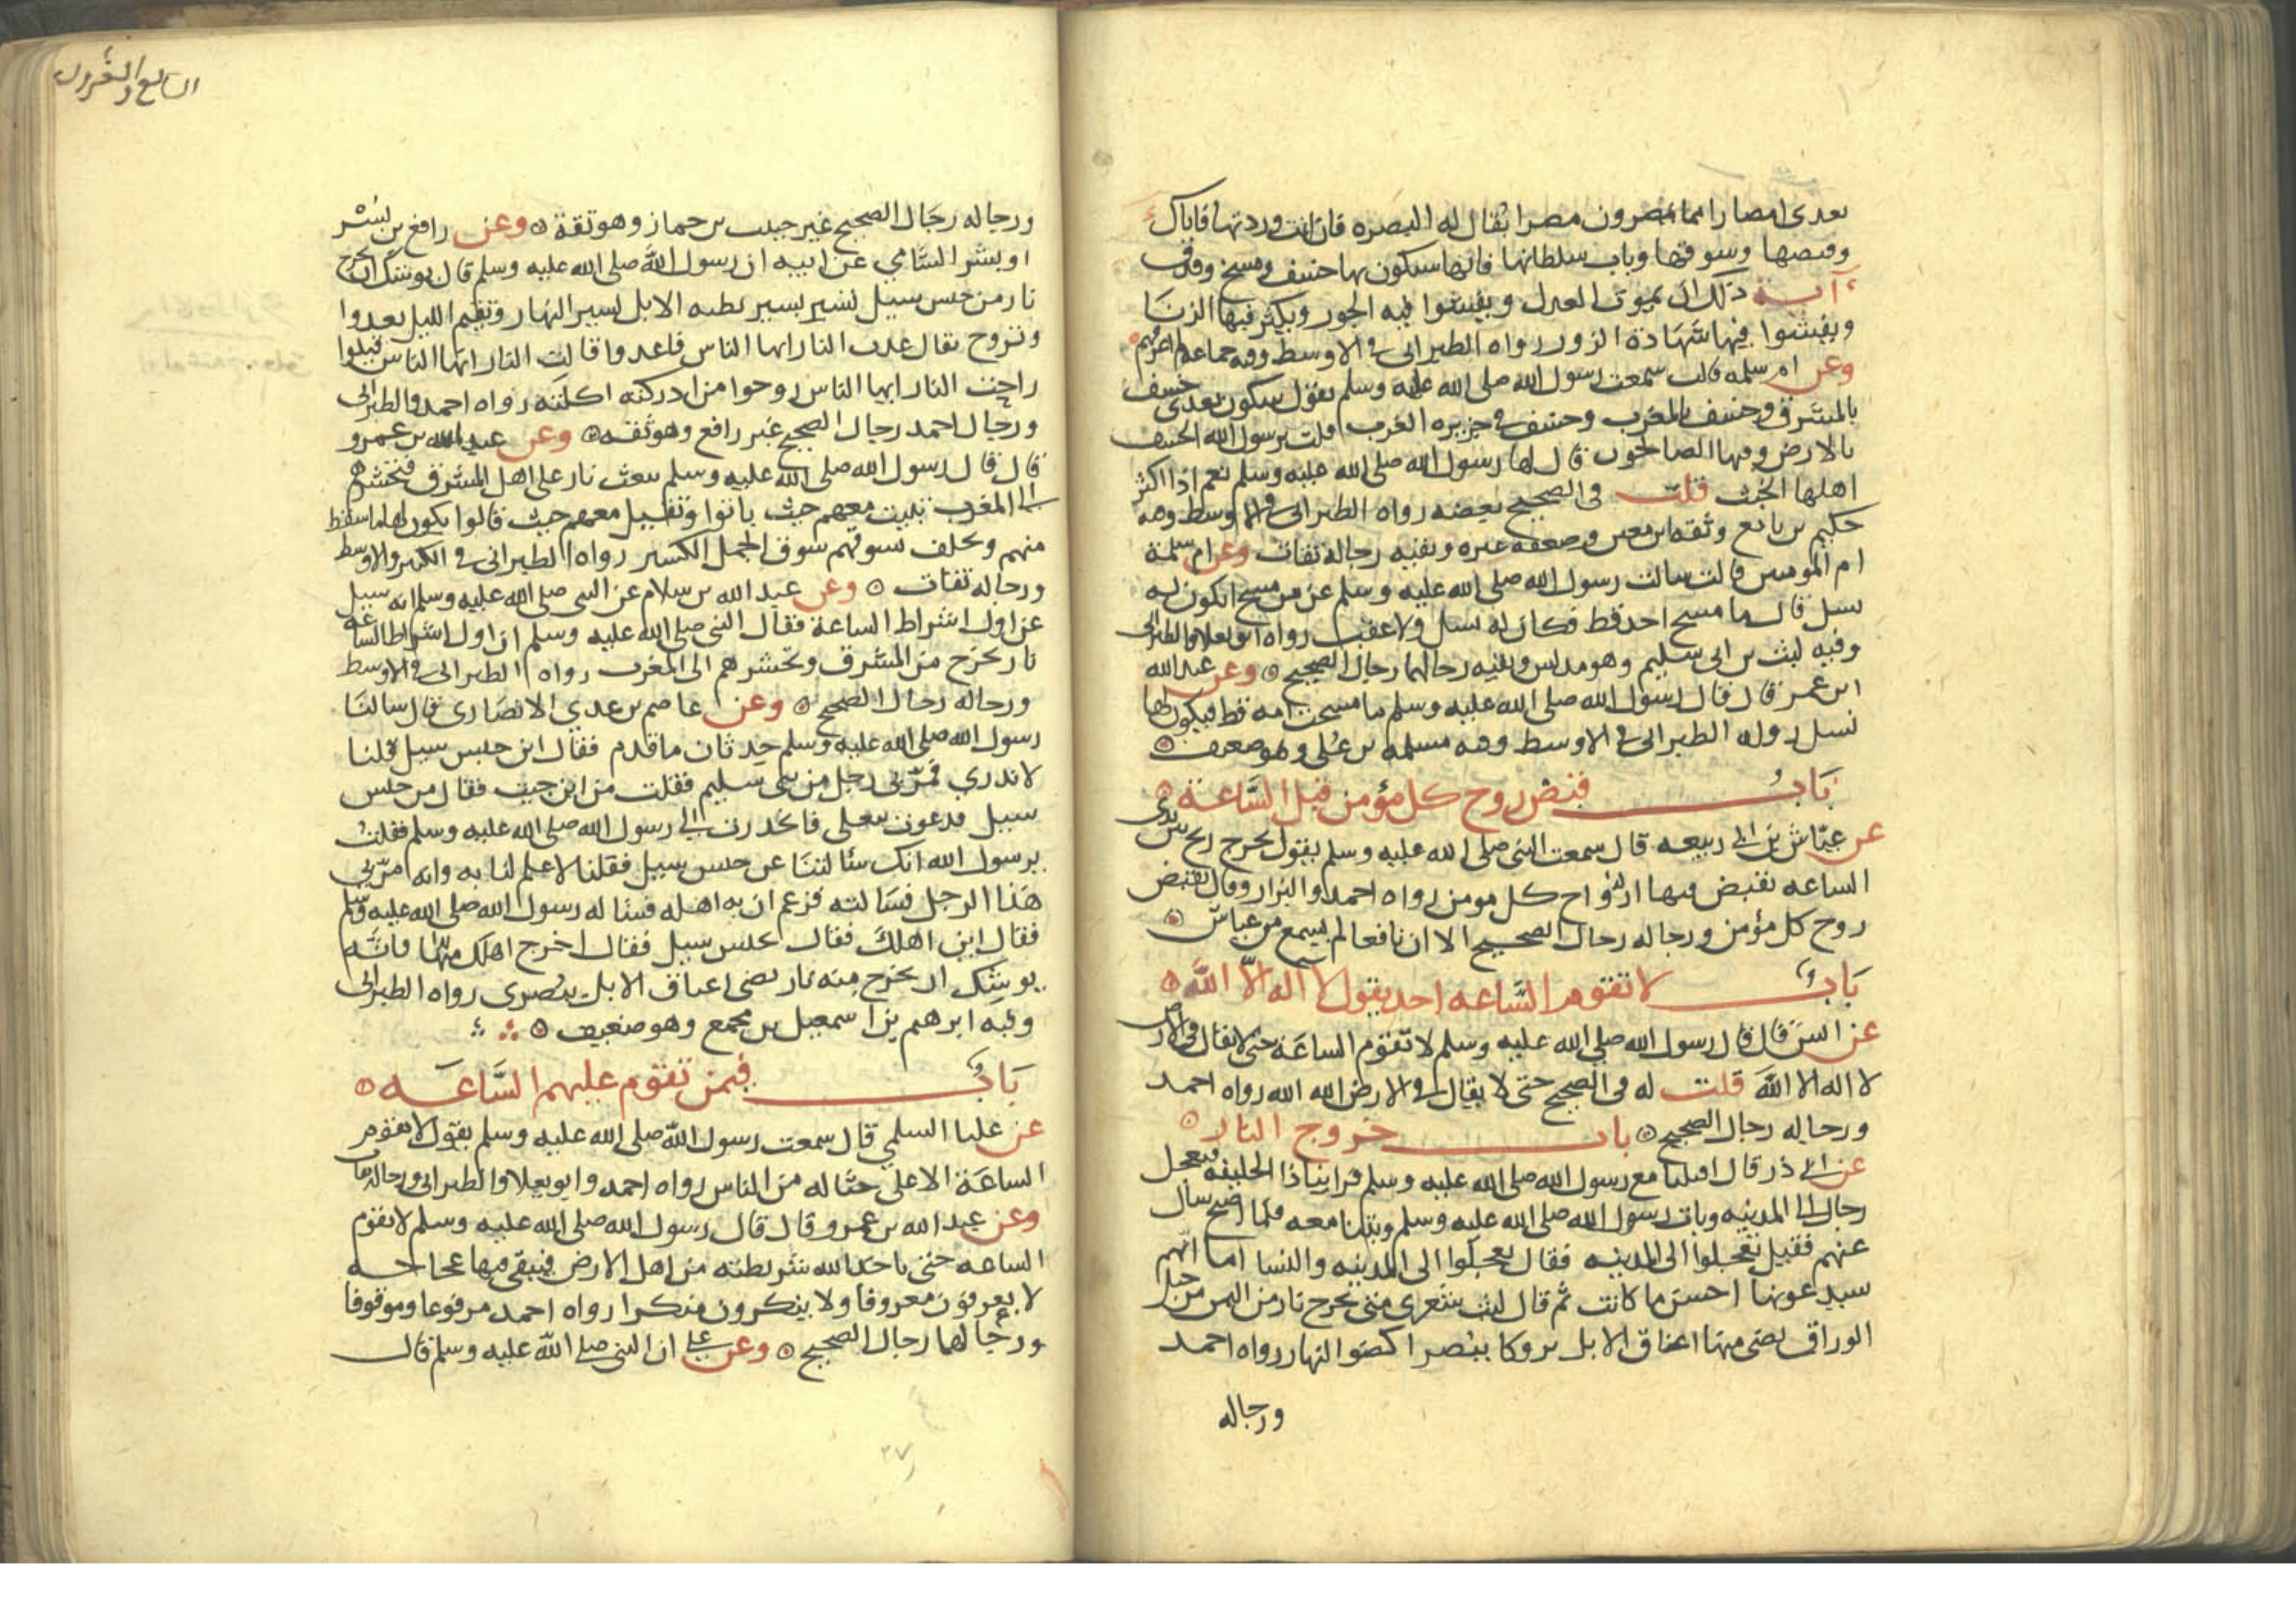 بعدي امصارا مما يمصرون مصرا يقال له البصره فان انت وردتها فاياك
ومقصفها وسوقها وباب سلطانها فانها سيكون بها خسف ومسخ وقذف
آية ذلك ان يموت العدل ويفشوا فيه الجور ويكثر فيها الزنا
ويفشوا فيها شهادة الزور رواه الطبراني في الاوسط وفيه جماعة لم اعرفهم
وعن ام سلمه قالت سمعت رسول الله صلى الله عليه وسلم يقول سيكون بعدي خسف
بالمشرق وخسف بالمغرب وخسف في جزيره العرب قلت يرسول الله الخسف
بالارض وفيها الصالحون قال لها رسول الله صلى الله عليه وسلم نعم اذا اكثر
اهلها الخبث قلت في الصحيح بعضه رواه الطبراني في الاوسط وفيه
حكيم بن نافع وثقه ابن معين وضعفه غيره وبقيه رجاله ثقات وعن ام سلمة
ام المومنين قالت سالت رسول الله صلى الله عليه وسلم عن من مسخ ايكون له
نسل قال ما مسخ احد قط فكان له نسل ولا عقب رواه ابو يعلا والطبراني
وفيه ليث بن ابي سليم وهو مدلس وبقيه رجالهما رجال الصحيح وعن عبد الله
ابن عمر قال قال رسول الله صلى الله عليه وسلم ما مسخت امه قط فيكون لها
نسل رواه الطبراني في الاوسط وفيه مسلمه بن علي وهو ضعيف
باب قبض روح كل مؤمن قبل الساعة
عن عياش بن ابي ربيعه قال سمعت النبي صلى الله عليه وسلم يقول تخرج ريح بين يدي
الساعه تقبض فيها ارواح كل مومن رواه احمد والبزار وقال تقبض
روح كل مؤمن ورجاله رجال الصحيح الا ان نافعا لم يسمع من عياش
باب لا تقوم الساعه احد يقول لا اله الا الله
عن انس قال قال رسول الله صلى الله عليه وسلم لا تقوم الساعة حتى لا يقال في الارض
لا اله الا الله قلت له في الصحيح حتى لا يقال في الارض الله الله رواه احمد
ورجاله رجال الصحيح باب خروج النار
عن ابي ذر قال اقبلنا مع رسول الله صلى الله عليه وسلم فراينا ذا الحليفه فتعجل
رجال الى المدينه وبات رسول الله صلى الله عليه وسلم وبتنا معه فلما اصبح سال
عنهم فقيل تعجلوا الى المدينه فقال تعجلوا الى المدينه والنسا اما انهم
سيدعونها احسن ما كانت ثم قال ليت شعري متى تخرج نار من اليمن من جبل
الوراق تضى منها اعناق الابل بروكا ببصرا كضو النهار رواه احمد
ورجاله
السابع والعشرون
ورجاله رجال الصحيح غير حبيب بن حماز وهو ثقة وعن رافع بن بشر
او بشر السلمي عن ابيه ان رسول الله صلى الله عليه وسلم قال يوشك ان تخرج
نار من حبس سيل تسير بسير بطيه الابل تسير النهار وتقيم الليل تغدوا
وتروح يقال غدت النار ايها الناس فاغدوا قالت النار ايها الناس فقيلوا
راحت النار ايها الناس روحوا من ادركته اكلته رواه احمد والطبراني
ورجال احمد رجال الصحيح غير رافع وهو ثقه وعن عبد الله بن عمرو
قال قال رسول الله صلى الله عليه وسلم تبعث نار على اهل المشرق فتحشرهم
الى المغرب تبيت معهم حيث باتوا وتقيل معهم حيث قالوا يكون لها ما سقط
منهم وتخلف تسوقهم سوق الجمل الكسير رواه الطبراني في الكبير والاوسط
ورجاله ثقات وعن عبد الله بن سلام عن النبي صلى الله عليه وسلم انه سيل
عن اول اشراط الساعة فقال النبي صلى الله عليه وسلم ان اول اشراط الساعة
نار تخرج من المشرق وتحشرهم الى المغرب رواه الطبراني في الاوسط
ورجاله رجال الصحيح وعن عاصم بن عدي الانصاري قال سالنا
رسول الله صلى الله عليه وسلم حدثان ما قدم فقال اين حبس سيل قلنا
لا ندري فمر بي رجل من بني سليم فقلت من اين جيت فقال من حبس
سيل فدعوت بنعلي فانحدرت الى رسول الله صلى الله عليه وسلم فقلت
يرسول الله انك سالتنا عن حبس سيل فقلنا لا علم لنا به وانه مر بي
هذا الرجل فسالته فزعم ان به اهله فساله رسول الله صلى الله عليه وسلم
فقال اين اهلك فقال بحبس سيل فقال اخرج اهلك منها فانه
يوشك ان تخرج منه نار تضى اعناق الابل ببصرى رواه الطبراني
وفيه ابرهيم بن اسمعيل بن مجمع وهو ضعيف
باب فيمن تقوم عليهم الساعة
عن علبا السلمي قال سمعت رسول الله صلى الله عليه وسلم يقول لا تقوم
الساعة الا على حثاله من الناس رواه احمد وابو يعلا والطبراني ورجاله ثقات
وعن عبد الله بن عمرو قال قال رسول الله صلى الله عليه وسلم لا تقوم
الساعه حتى ياخذ الله شريطته من اهل الارض فيبقى فيها عجاجه
لا يعرفون معروفا ولا ينكرون منكرا رواه احمد مرفوعا وموقوفا
ورجالهما رجال الصحيح وعن علي ان النبي صلى الله عليه وسلم قال
٢٧